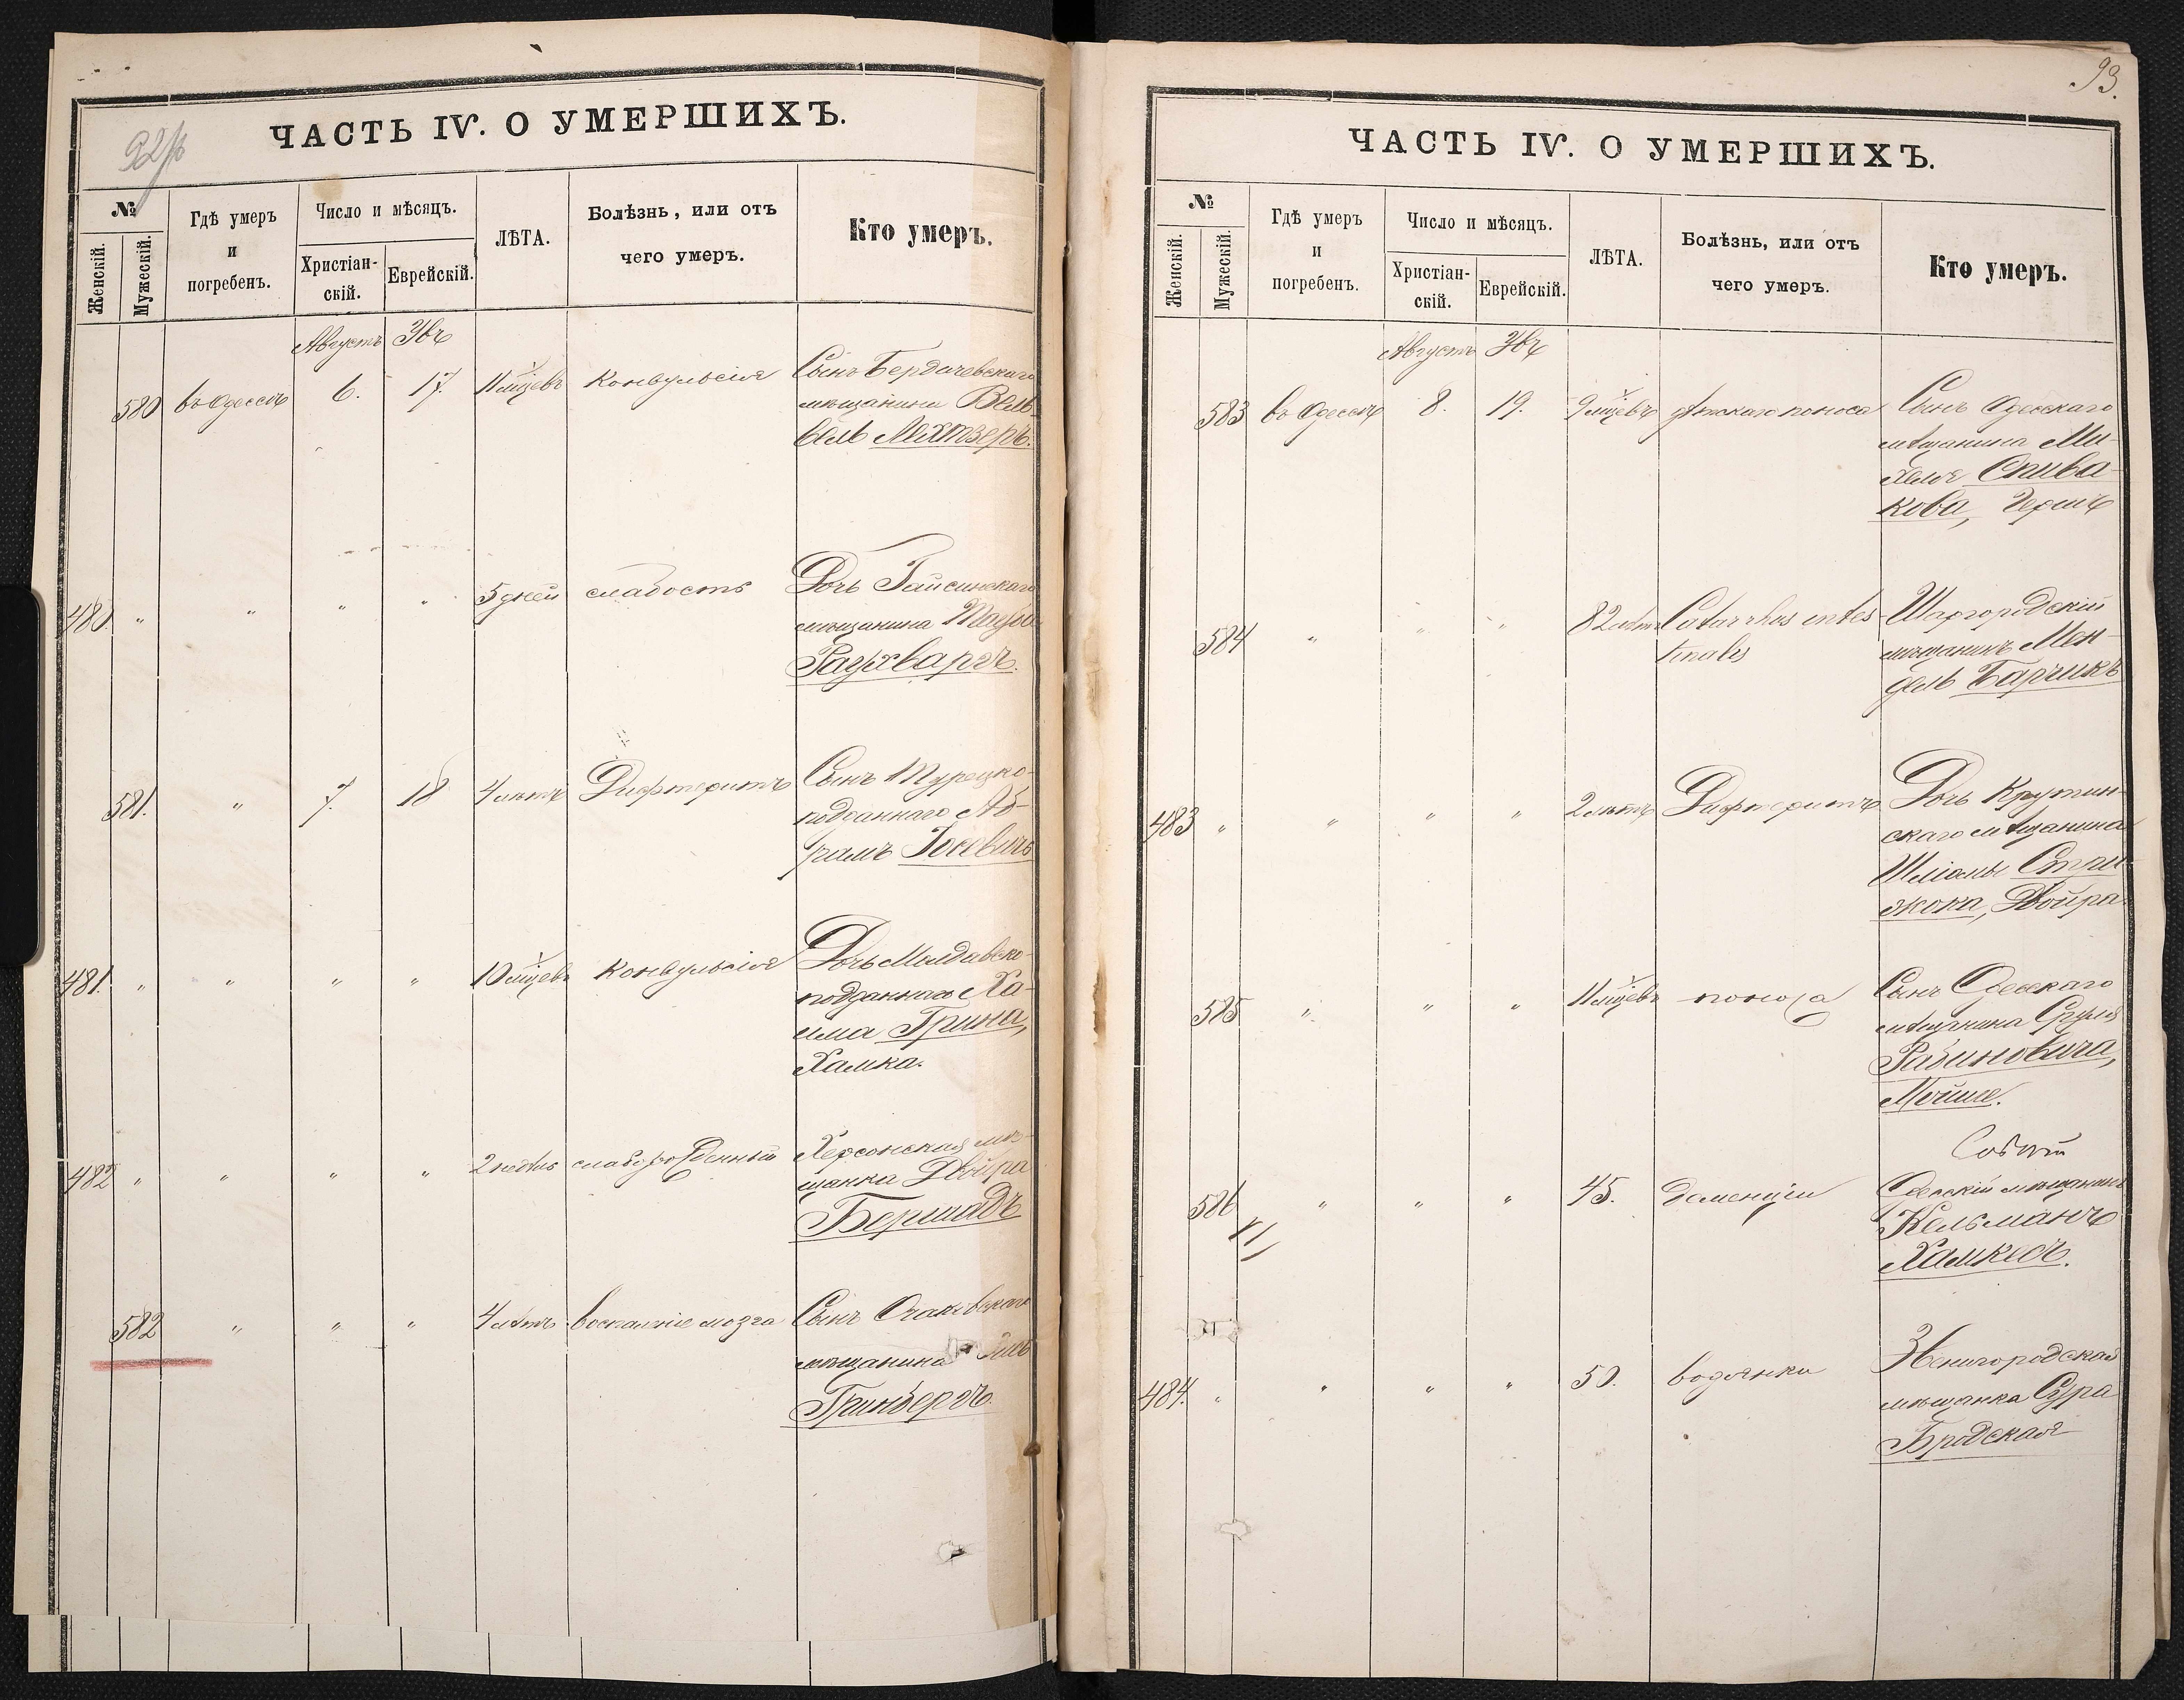 92/б
ЧАСТЬ IV. О УМЕРШИХЪ.
№
Женскій.
Мужескій.
Гдѣ умеръ
и
погребенъ.
Число и мѣсяцъ.
Христіан-
скій.
Еврейскій.
ЛѢТА.
Болѣзнь, или отъ
чего умеръ.
Кто умеръ.
Августъ
580 въ Одессѣ 6. 17. 11 мѣсцевъ Конвульсія Сынъ Бердичевскаго
мѣщанина Вель-
вель Мехтзеръ.
480. " " " " 5 дней слабость Дочь Гайсинскаго
мѣщанина
581. " 7. 18 4 лѣтъ Дифтеритъ Сынъ Турецко-
подданнаго Аб-
рамъ Іосевичъ
481. " " " " 10 мѣсцевъ Конвульсія Дочь Молдавско-
подданнаго Ха-
има Грина,
Хамка.
482 " " " " 2 недѣль слаборожденный Херсонская мѣ-
щанка Двойра
Бершадъ
582 " " " 4 лѣтъ воспаленіе мозга Сынъ Очаковскаго
мѣщанина
Гринбергъ.
93.
ЧАСТЬ IV. О УМЕРШИХЪ.
№
Женскій.
Мужескій.
Гдѣ умеръ
и
погребенъ.
Число и мѣсяцъ.
Христіан-
скій.
Еврейскій.
ЛѢТА.
Болѣзнь, или отъ
чего умеръ.
Кто умеръ.
Августъ
583 въ Одессѣ 8. 19. 9 мѣсцевъ дѣтскаго поноса Сынъ Одесскаго
мѣщанина Ми-
хеля Спива-
кова, Гершъ
584 " " " 82 лѣтъ Catarrhus intes- Шаргородскій
tinalis мѣщанинъ Мен-
дель Барчикъ
483 " " " " 2 лѣтъ Дифтеритъ Дочь Крутин-
скаго мѣщанина
Шліомы Стри-
жока, Двойра.
585 " " " 11 мѣсцевъ поноса Сынъ Одесскаго
мѣщанина Сруля
Рабиновича,
Мойше.
586 " " " 45. деменціи Одесскій мѣщанинъ
Кельманъ
Хамкесъ.
484. " " " " 50. водянки Звенигородская
мѣщанка Сура
Бродская